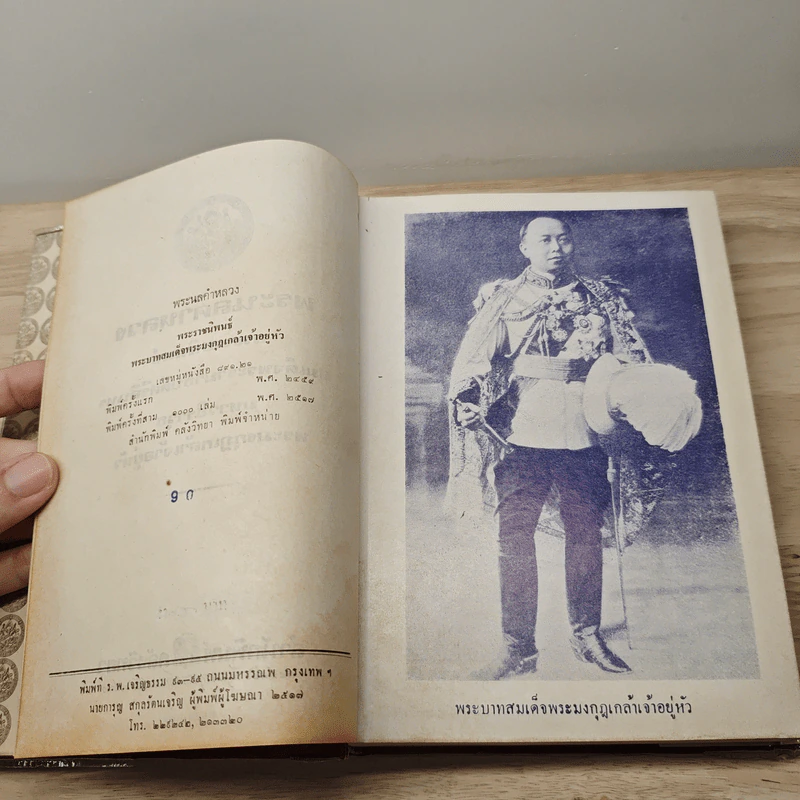 พระนลคำหลวง
พระราชนิพนธ์
พระบาทสมเด็จพระมงกุฎเกล้าเจ้าอยู่หัว
เลขหมู่หนังสือ ๘๙๑.๒๑
พิมพ์ครั้งแรก พ.ศ. ๒๔๕๙
พิมพ์ครั้งที่สาม ๑๐๐๐ เล่ม พ.ศ. ๒๕๑๗
สำนักพิมพ์ คลังวิทยา พิมพ์จำหน่าย
บาท
พิมพ์ที่ ร.พ.เจริญธรรม ๙๓-๙๕ ถนนมหรรณพ กรุงเทพ ฯ
นายการุญ สกุลรัตนเจริญ ผู้พิมพ์ผู้โฆษณา ๒๕๑๗
โทร. ๒๒๙๒๔๒, ๒๑๓๓๒๐
พระบาทสมเด็จพระมงกุฎเกล้าเจ้าอยู่หัว